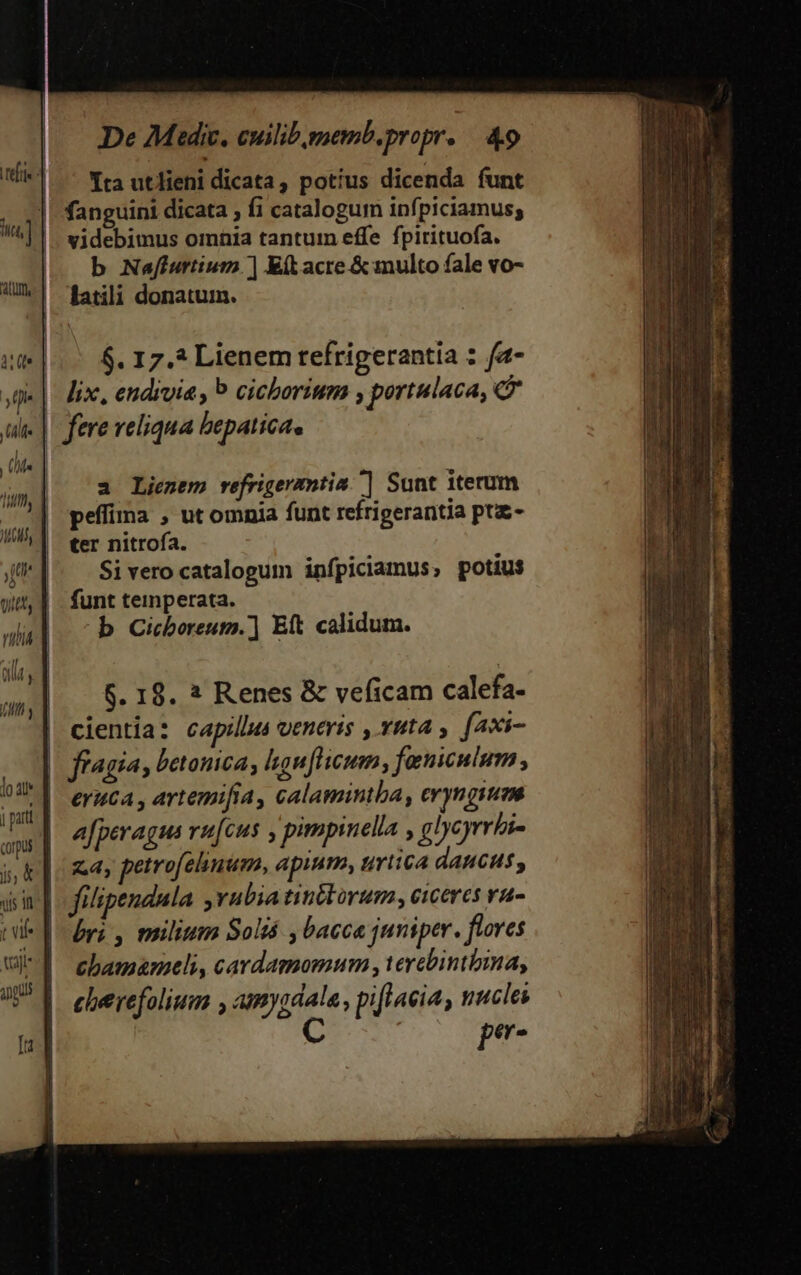 De Medic. cuilib.memb.propr. 49
Ita ut lieni dicata, potius dicenda ſunt
ſanguini dicata, ſi catalogum inſpiciamus,
videbimus omnia tantum eſſe ſpirituoſa.
b Naſturtium.] Eſt acre & multo ſale vo-
latili donatum.
§. 17.ª Lienem refrigerantia : ſa-
lix, endivia, b cichorium, portulaca, &
fere reliqua hepatica.
a Lienem refrigerantia.] Sunt iterum
peſſima, ut omnia ſunt refrigerantia præ-
ter nitroſa.
Si vero catalogum inſpiciamus, potius
ſunt temperata.
b Cichoreum.] Eſt calidum.
§. 18. ª Renes & veſicam calefa-
cientia: capillus veneris, ruta, ſaxi-
fragia, betonica, liguſticum, fœniculum,
eruca, artemiſia, calamintha, eryngium
aſperagus ruſcus, pimpinella, glycyrrhi-
za, petroſelinum, apium, urtica daucus,
filipendula, rubia tinctorum, ciceres ru-
bri, milium Solis, baccæ juniper. flores
chamæmeli, cardamomum, terebinthina,
chærefolium, amygdala, piſtacia, nuclei
C per-